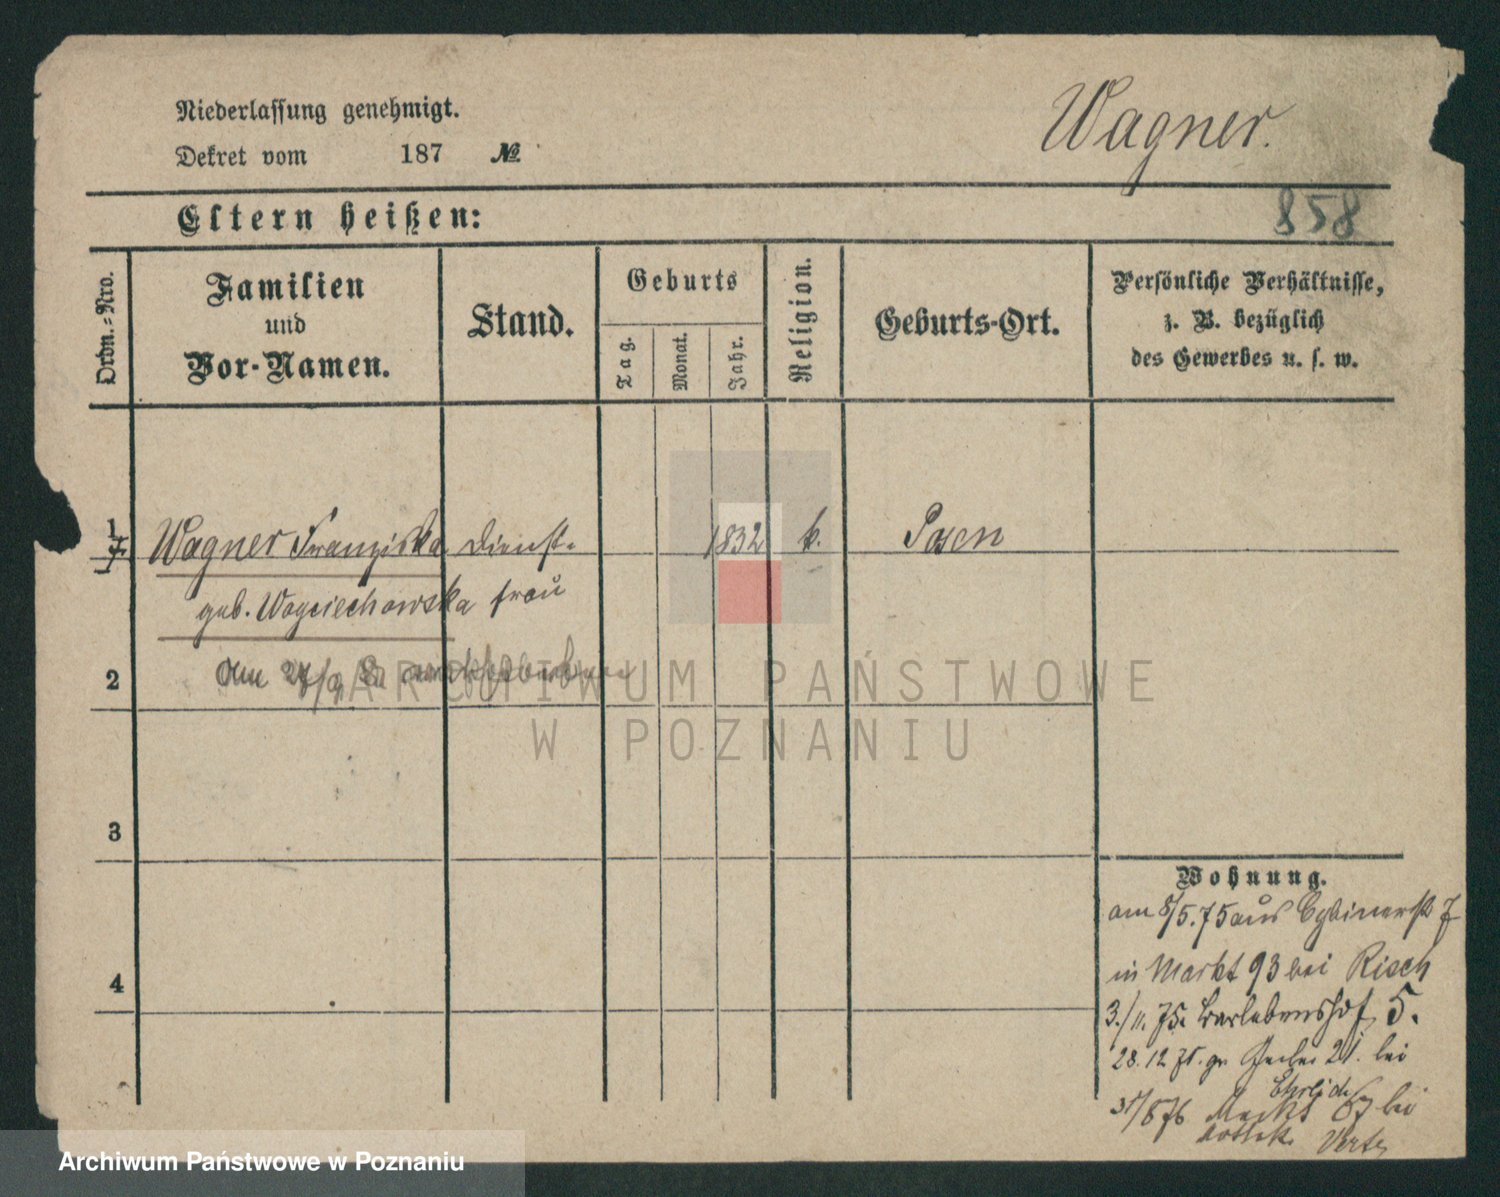 Niederlassung genehmigt.
Wagner.
Dekret vom 187 №
858
Eltern heißen:
Ordn.-Nro.
Familien
und
Vor-Namen.
Stand.
Geburts
Tag.
Monat.
Jahr.
Religion.
Geburts-Ort.
Persönliche Verhältnisse,
z. B. bezüglich
des Gewerbes u. s. w.
1 Wagner Franziska Dienst- 1832 k. Posen
geb. Woyciechowska frau
2 Am 27/9
3
4
Wohnung.
am 8/5.75 aus 7
in Markt 93 bei Risch
3./11. 75. Berlebenshof 5.
28.12 75. gr. Gerber 21. bei
31/8 76 Markt bei
ARCHIWUM PAŃSTWOWE
W POZNANIU
Archiwum Państwowe w Poznaniu